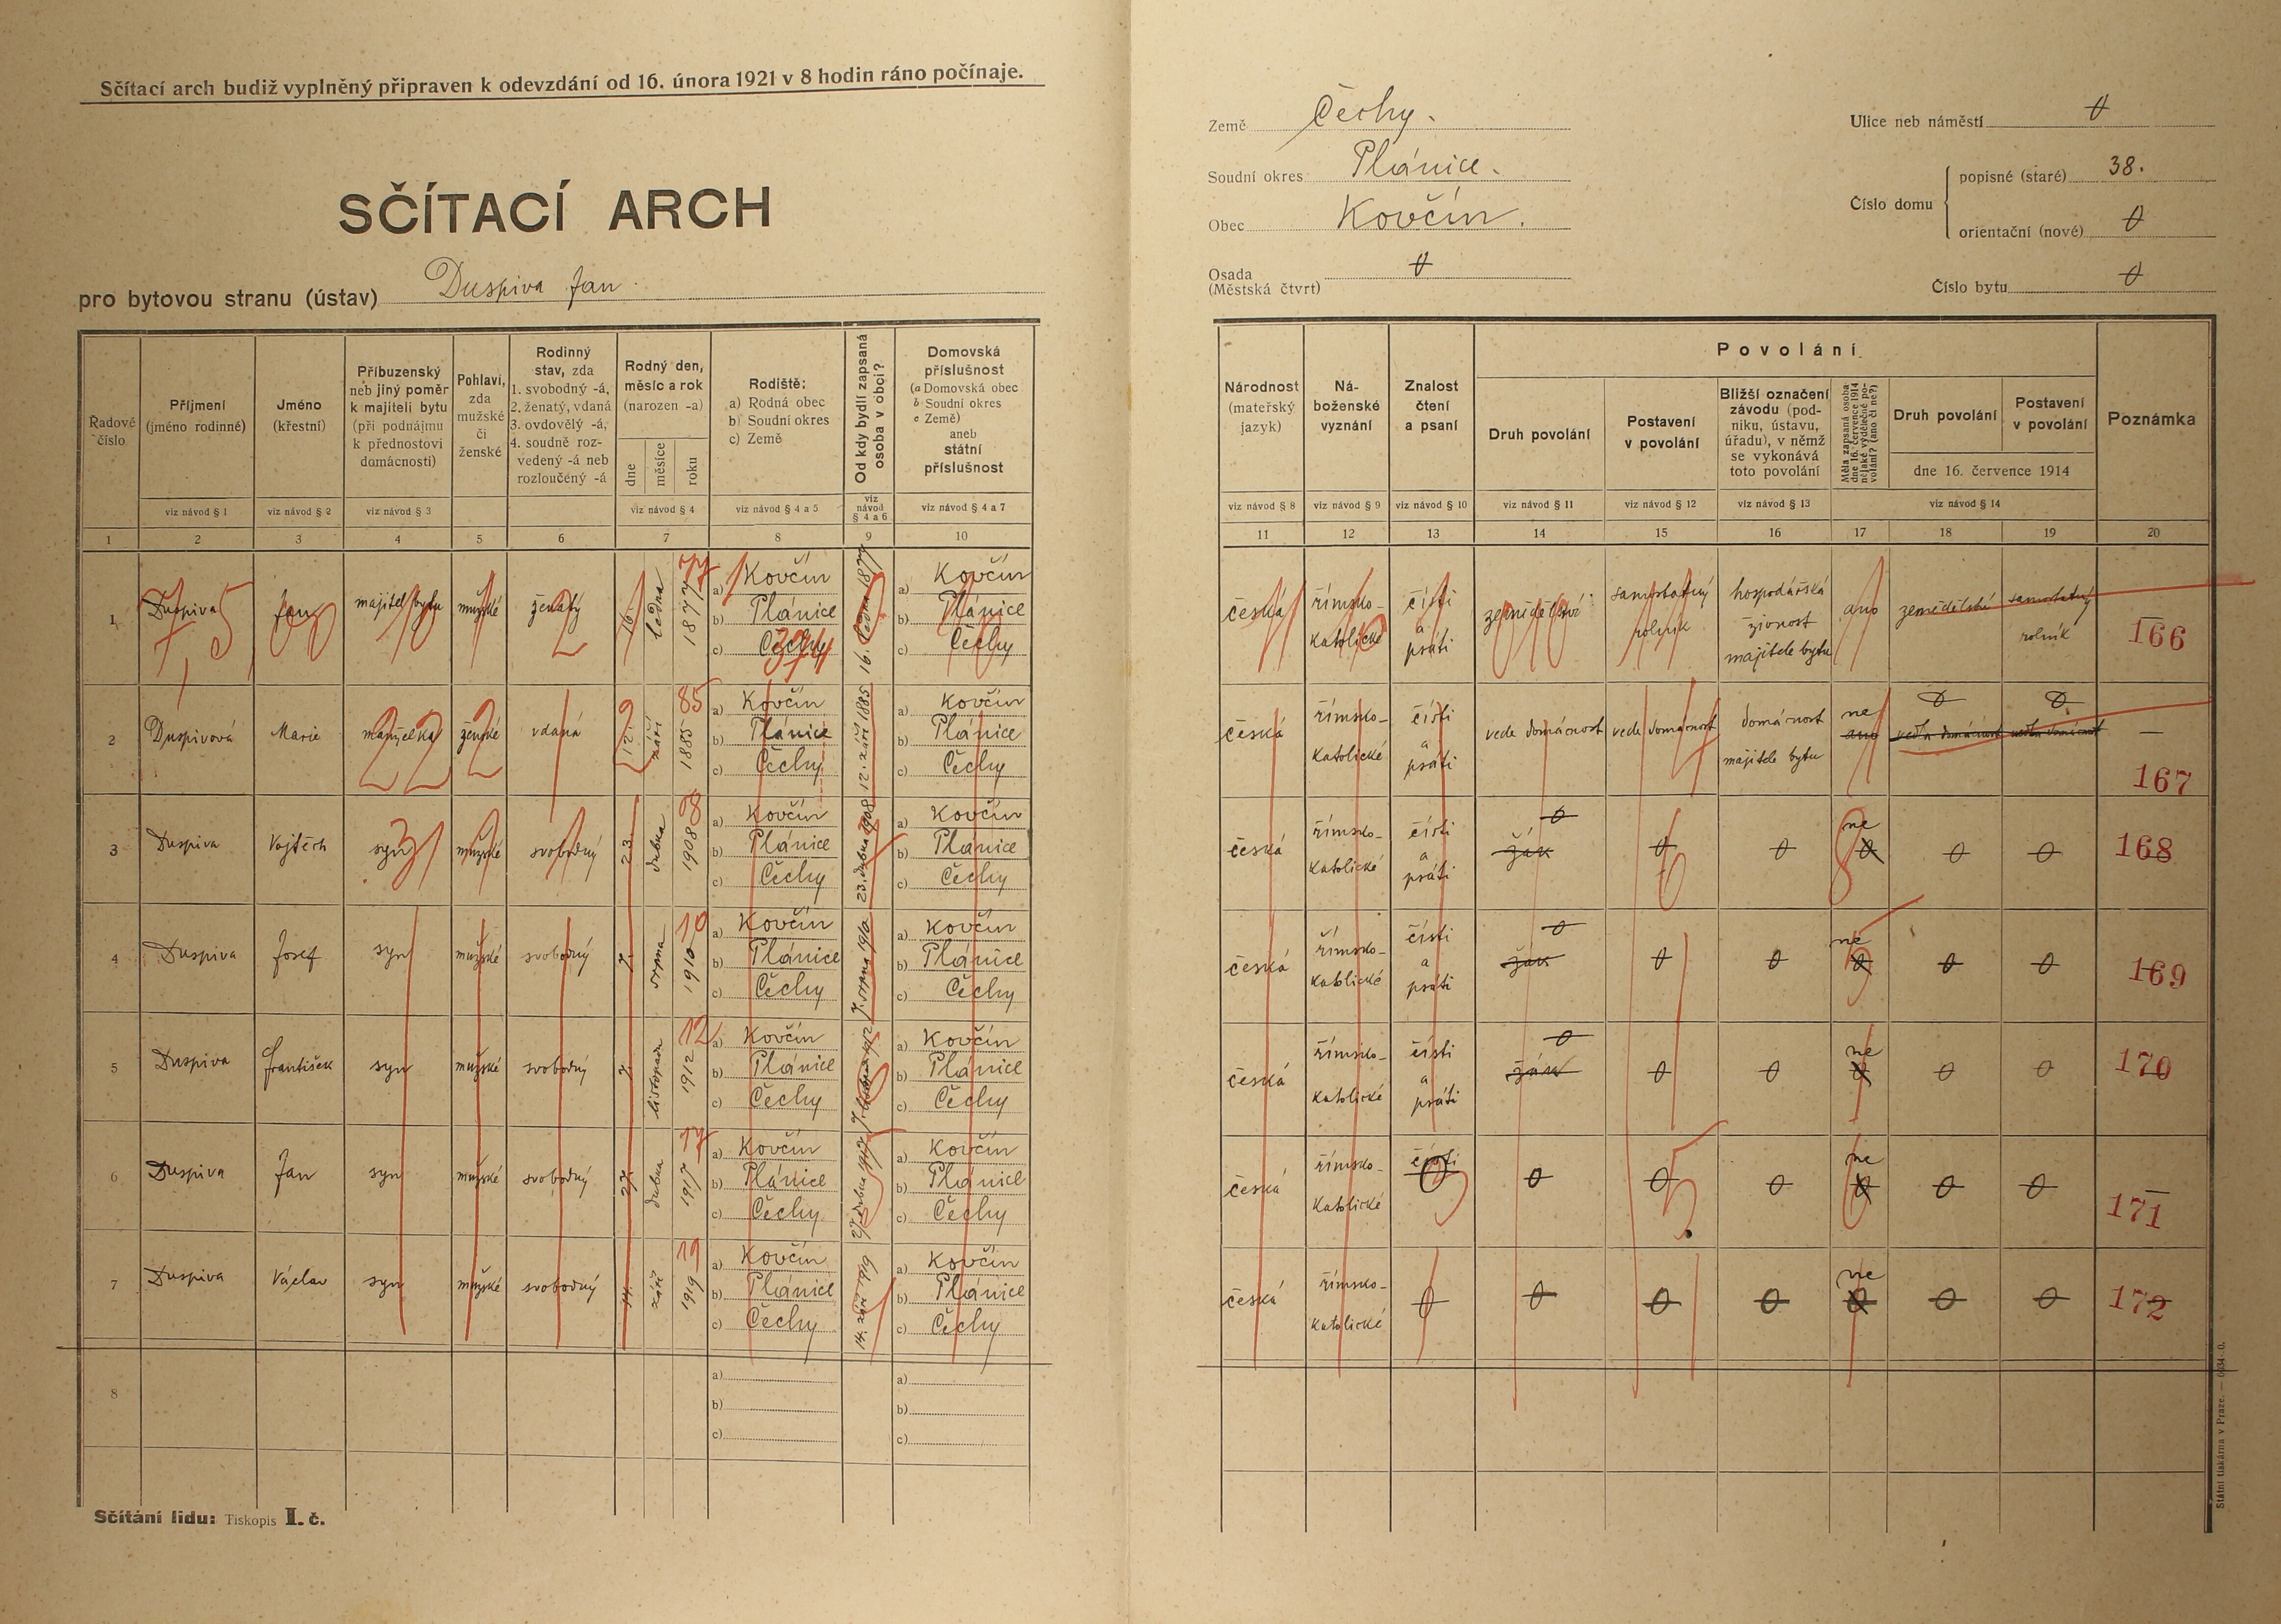 Sčítací arch budiž vyplněný připraven k odevzdání od 16. února 1921 v 8 hodin ráno počínaje.
SČÍTACÍ ARCH
pro bytovou stranu (ústav) Duspiva Jan.
Země Čechy.
Soudní okres Plánice.
Obec Kovčín.
Osada 0
(Městská čtvrt)
Ulice neb náměstí 0
Číslo domu
popisné (staré) 38.
orientační (nové) 0
Číslo bytu 0
Řadové číslo
Příjmení (jméno rodinné)
Jméno (křestní)
Příbuzenský neb jiný poměr k majiteli bytu (při podnájmu k přednostovi domácnosti)
Pohlaví, zda mužské či ženské
Rodinný stav, zda 1. svobodný -á, 2. ženatý, vdaná 3. ovdovělý -á, 4. soudně rozvedený -á neb rozloučený -á
Rodný den, měsíc a rok (narozen -a)
dne měsíce roku
Rodiště: a) Rodná obec b) Soudní okres c) Země
Od kdy bydlí zapsaná osoba v obci?
Domovská příslušnost (a Domovská obec b Soudní okres c Země) aneb státní příslušnost
viz návod § 1 viz návod § 2 viz návod § 3 viz návod § 4 viz návod § 4 a 5 viz návod § 4 a 6 viz návod § 4 a 7
1 2 3 4 5 6 7 8 9 10
Národnost (mateřský jazyk)
Náboženské vyznání
Znalost čtení a psaní
Povolání
Druh povolání
Postavení v povolání
Bližší označení závodu (podniku, ústavu, úřadu), v němž se vykonává toto povolání
Měla zapsaná osoba dne 16. července 1914 nějaké výdělečné povolání? (ano či ne?)
Druh povolání
Postavení v povolání
dne 16. července 1914
Poznámka
viz návod § 8 viz návod § 9 viz návod § 10 viz návod § 11 viz návod § 12 viz návod § 13 viz návod § 14
11 12 13 14 15 16 17 18 19 20
1 Duspiva Jan majitel bytu mužské ženatý 16. ledna 1877 77 a) Kovčín b) Plánice c) Čechy 16. ledna 1877 a) Kovčín b) Plánice c) Čechy
česká římsko-katolické čísti a psáti zemědělství samostatný rolník hospodářská živnost majitele bytu ano zemědělství samostatný rolník 166
2 Duspivová Marie manželka ženské vdaná 12. září 1885 85 a) Kovčín b) Plánice c) Čechy 12. září 1885 a) Kovčín b) Plánice c) Čechy
česká římsko-katolické čísti a psáti vede domácnost vede domácnost domácnost majitele bytu ne ano 0 0 167
3 Duspiva Vojtěch syn mužské svobodný 23. dubna 1908 08 a) Kovčín b) Plánice c) Čechy 23. dubna 1908 a) Kovčín b) Plánice c) Čechy
česká římsko-katolické čísti a psáti 0 žák 0 0 ne 0 0 0 168
4 Duspiva Josef syn mužské svobodný 7. srpna 1910 10 a) Kovčín b) Plánice c) Čechy 7. srpna 1910 a) Kovčín b) Plánice c) Čechy
česká římsko-katolické čísti a psáti 0 žák 0 0 ne 0 0 0 169
5 Duspiva František syn mužské svobodný 7. listopadu 1912 12 a) Kovčín b) Plánice c) Čechy 7. listopadu 1912 a) Kovčín b) Plánice c) Čechy
česká římsko-katolické čísti a psáti 0 žák 0 0 ne 0 0 0 170
6 Duspiva Jan syn mužské svobodný 27. dubna 1917 17 a) Kovčín b) Plánice c) Čechy 27. dubna 1917 a) Kovčín b) Plánice c) Čechy
česká římsko-katolické čísti 0 0 0 0 ne 0 0 0 171
7 Duspiva Václav syn mužské svobodný 14. září 1919 19 a) Kovčín b) Plánice c) Čechy 14. září 1919 a) Kovčín b) Plánice c) Čechy
česká římsko-katolické 0 0 0 0 ne 0 0 0 172
8 a) b) c) a) b) c)
Sčítání lidu: Tiskopis I. č.
Státní tiskárna v Praze.